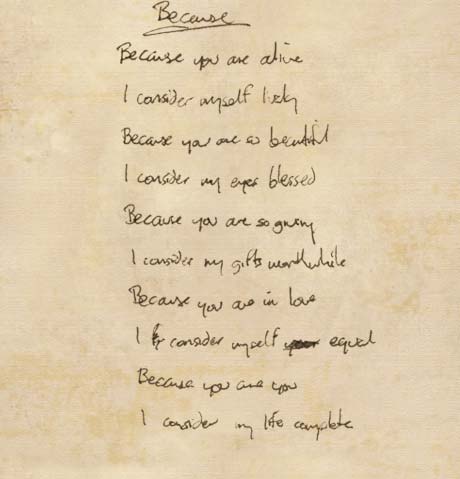 Because
Because you are alive
I consider myself lively
Because you are so beautiful
I consider my eyes blessed
Because you are so giving
I consider my gifts worthwhile
Because you are in love
I consider myself equal
Because you are you
I consider my life complete